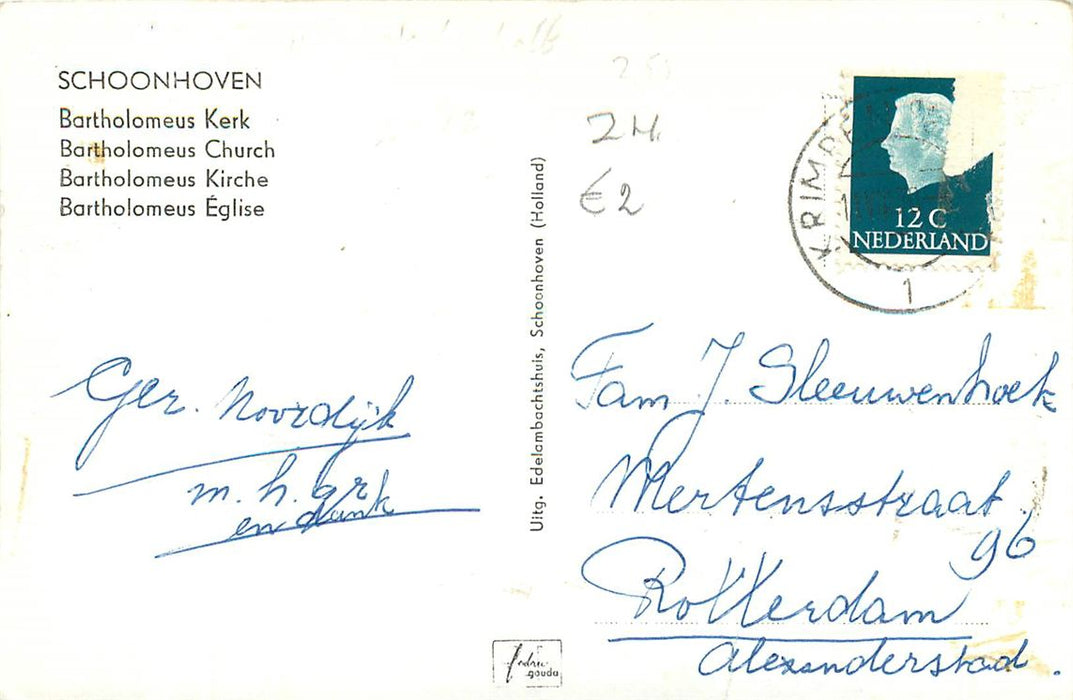 SCHOONHOVEN
Bartholomeus Kerk
Bartholomeus Church
Bartholomeus Kirche
Bartholomeus Église
ZH
€2
Uitg. Edelambachtshuis, Schoonhoven (Holland)
KRIMPEN
1
12 C
NEDERLAND
Ger. Noordijk
m. h. gr
en dank
Fam J. Sleeuwenhoek
Mertensstraat
96
Rotterdam
Alexanderstad.
gouda